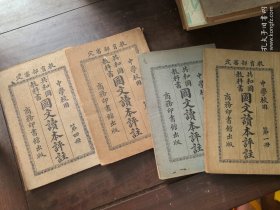 教育部審定
中學校用
共和國教科書
國文讀本評註
第四冊
商務印書館出版
教育部審定
中學校用
共和國教科書
國文讀本評註
商務印書館出版
中學校用
共和國教科書
國文讀本評註
商務印書館出版
中學校用
共和國教科書
國文讀本評註
第一冊
商務印書館出版